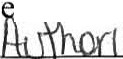 e
Author